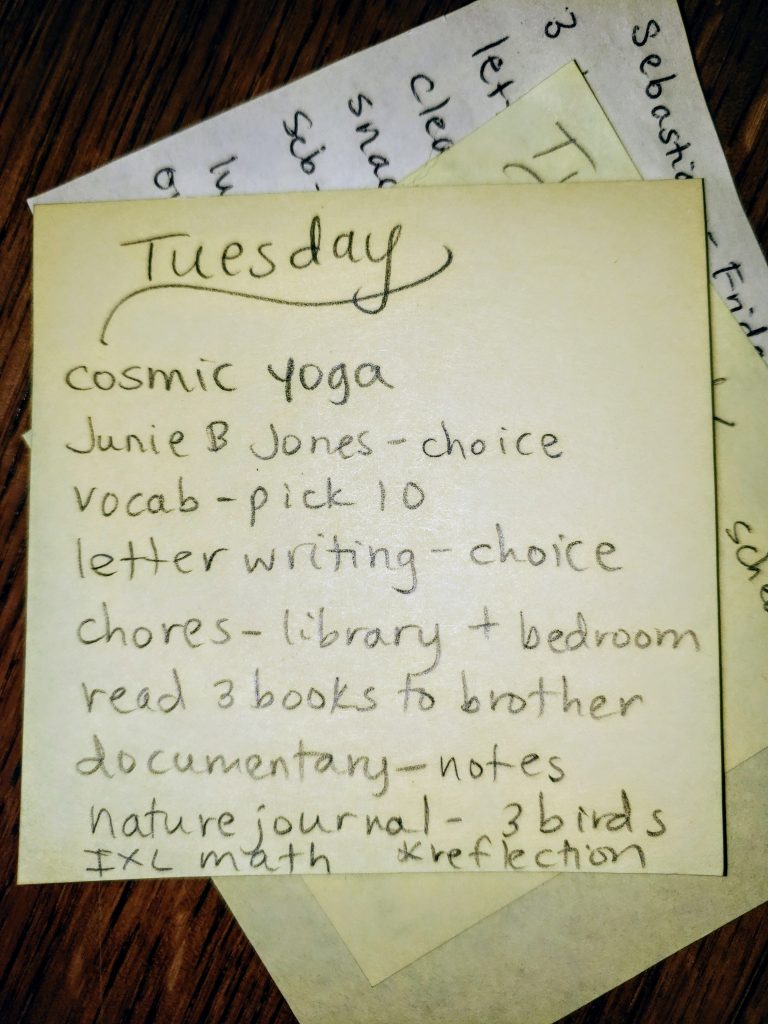 Tuesday
cosmic yoga
Junie B Jones - choice
vocab - pick 10
letter writing - choice
chores - library + bedroom
read 3 books to brother
documentary - notes
nature journal - 3 birds
IXL math *reflection